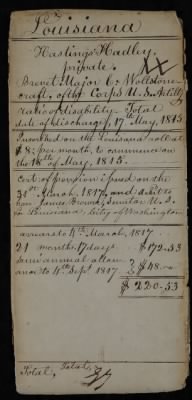 Louisiana
Hastings Hadley.
private
Brevet Major C. Wollstone-
craft, of the Corps U.S. Artill'y
ratio of disability Total
date of discharge, 17th May, 1815
Inscribed on the Louisiana roll at
$8, per month, to commence on
the 18th of May, 1815.
Cert. of pension issued on the
31st March, 1817, and sent to
hon. James Brown, Senator U.S.
for Louisiana, City of Washington
arrears to 4th March, 1817.
21 months, 17 days $172-53
semi annual
to 4th Sept. 1817 $48-
$220-53
Total, Total,